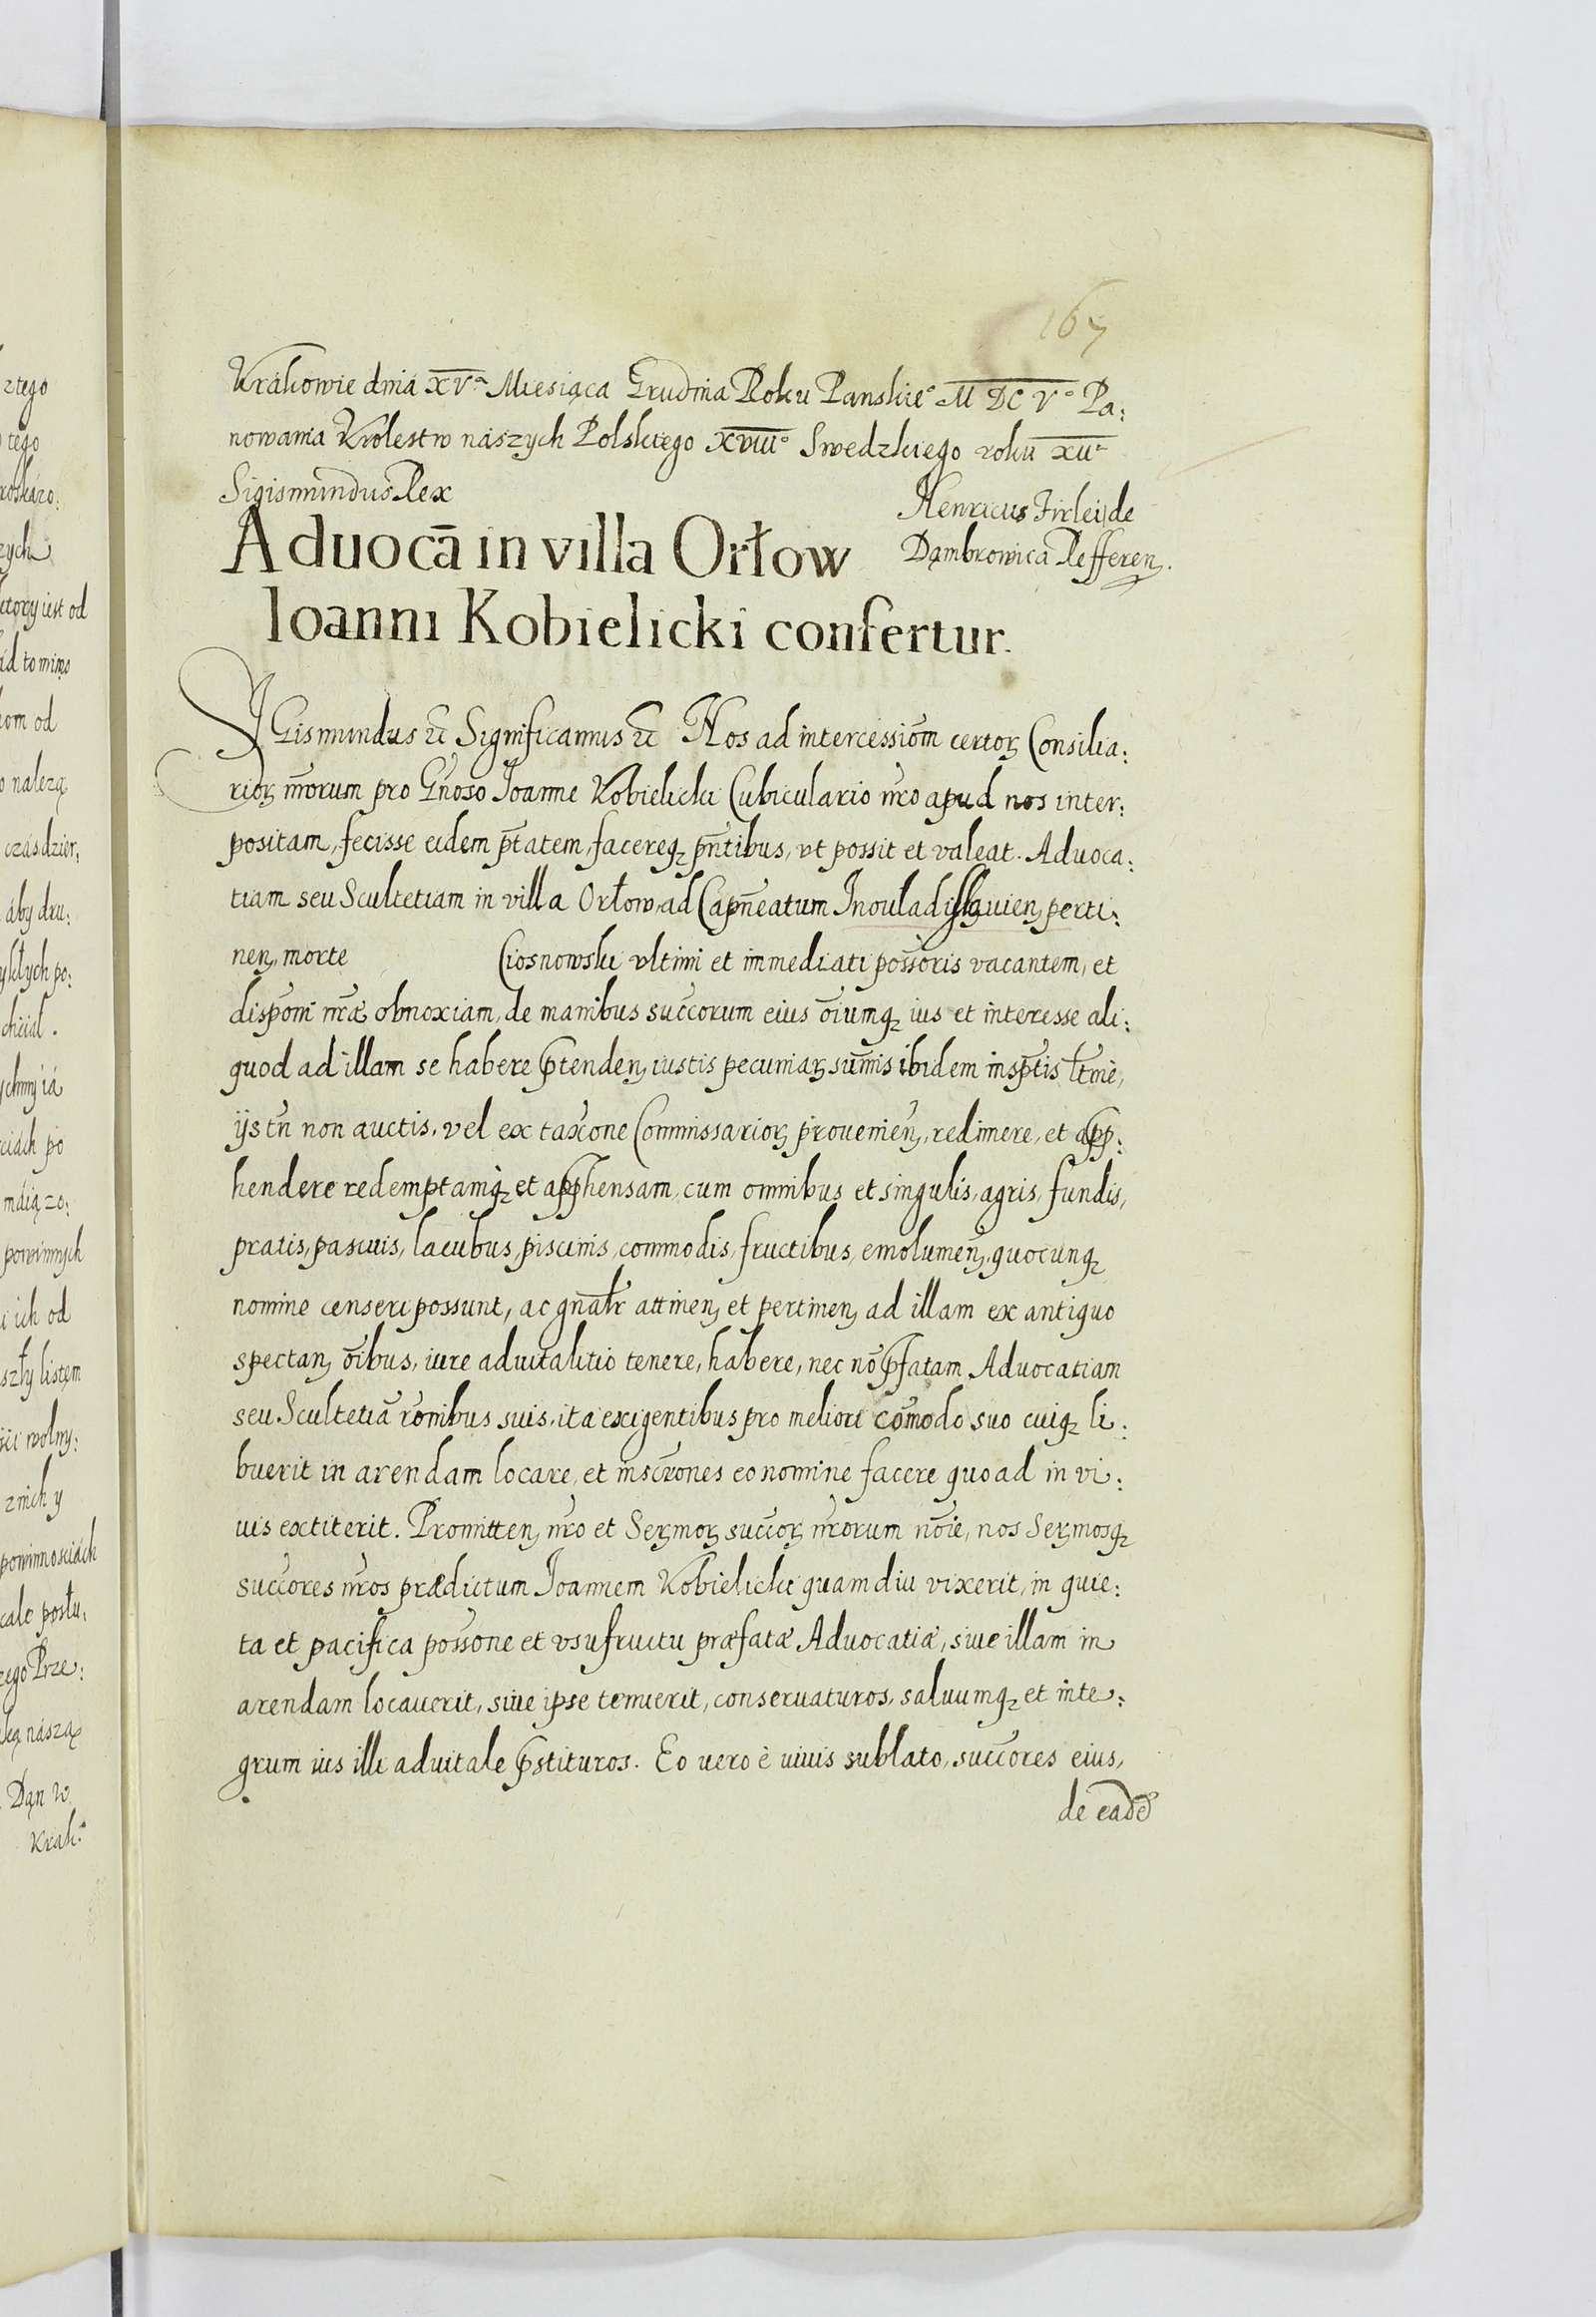 167
Krakowie dnia XVº Miesiąca Grudnia Roku Panskieº M DC Vº Pa:
nowania Krolestw naszych Polskiego XVIIIº Swedzkiego roku XIIº
Sigismundus Rex
Henricus Firlei de
Dąmbrowica Refferenȝ.
Aduocā in villa Orłow
Ioanni Kobielicki confertur.
SIGismundus etc̄ Significamus etc̄ Nos ad intercessiōm certorȝ Consilia:
riorȝ nr̄orum pro Gn̄oso Joanne Kobielicki Cubiculario nr̄o apud nos inter:
positam, fecisse eidem pt̄atem, facereqȝ pn̄tibus, vt possit et valeat. Aduoca:
tiam seu Scultetiam in villa Orłow, ad Capn̄eatum Inouladislauienȝ perti:
nenȝ, morte Ciosnowski vltimi et immediati poss̄oris vacantem, et
dispōni nr̄æ obnoxiam, de manibus succ̄orum eius ōiumqȝ ius et interesse ali:
quod ad illam se habere p̄tendenȝ iustis pecuniarȝ sum̄is ibidem insp̄tis lt̄mè,
ijs tn̄ non auctis, vel ex tax̄one Commissariorȝ prouenien̄, redimere, et app̄:
hendere redemptamqȝ et app̄hensam, cum omnibus et singulis, agris, fundis,
pratis, pascuis, lacubus, piscinis, commodis, fructibus, emolumen̄, quocunqȝ
nomine censeri possunt, ac gnālr attinenȝ et pertinenȝ ad illam ex antiquo
spectanȝ ōibus, iure aduitalitio tenere, habere, nec nō p̄fatam Aduocatiam
seu Scultetiā rōnibus suis, ita exigentibus pro meliori cōmodo suo cuiqȝ li:
buerit in arendam locare, et inscr̄ones eo nomine facere quoad in vi:
uis extiterit. Promittenȝ nr̄o et Serȝmorȝ succ̄orȝ nr̄orum nōie, nos Serȝmosqȝ
succ̄ores nr̄os prædictum Joannem Kobielicki quam diu vixerit, in quie:
ta et pacifica poss̄one et vsufructu præfatæ Aduocatiæ, siue illam in
arendam locauerit, siue ipse tenuerit, conseruaturos, saluumqȝ et inte:
grum ius illi aduitale p̄stituros. Eo uero è uiuis sublato, succ̄ores eius,
de eadē